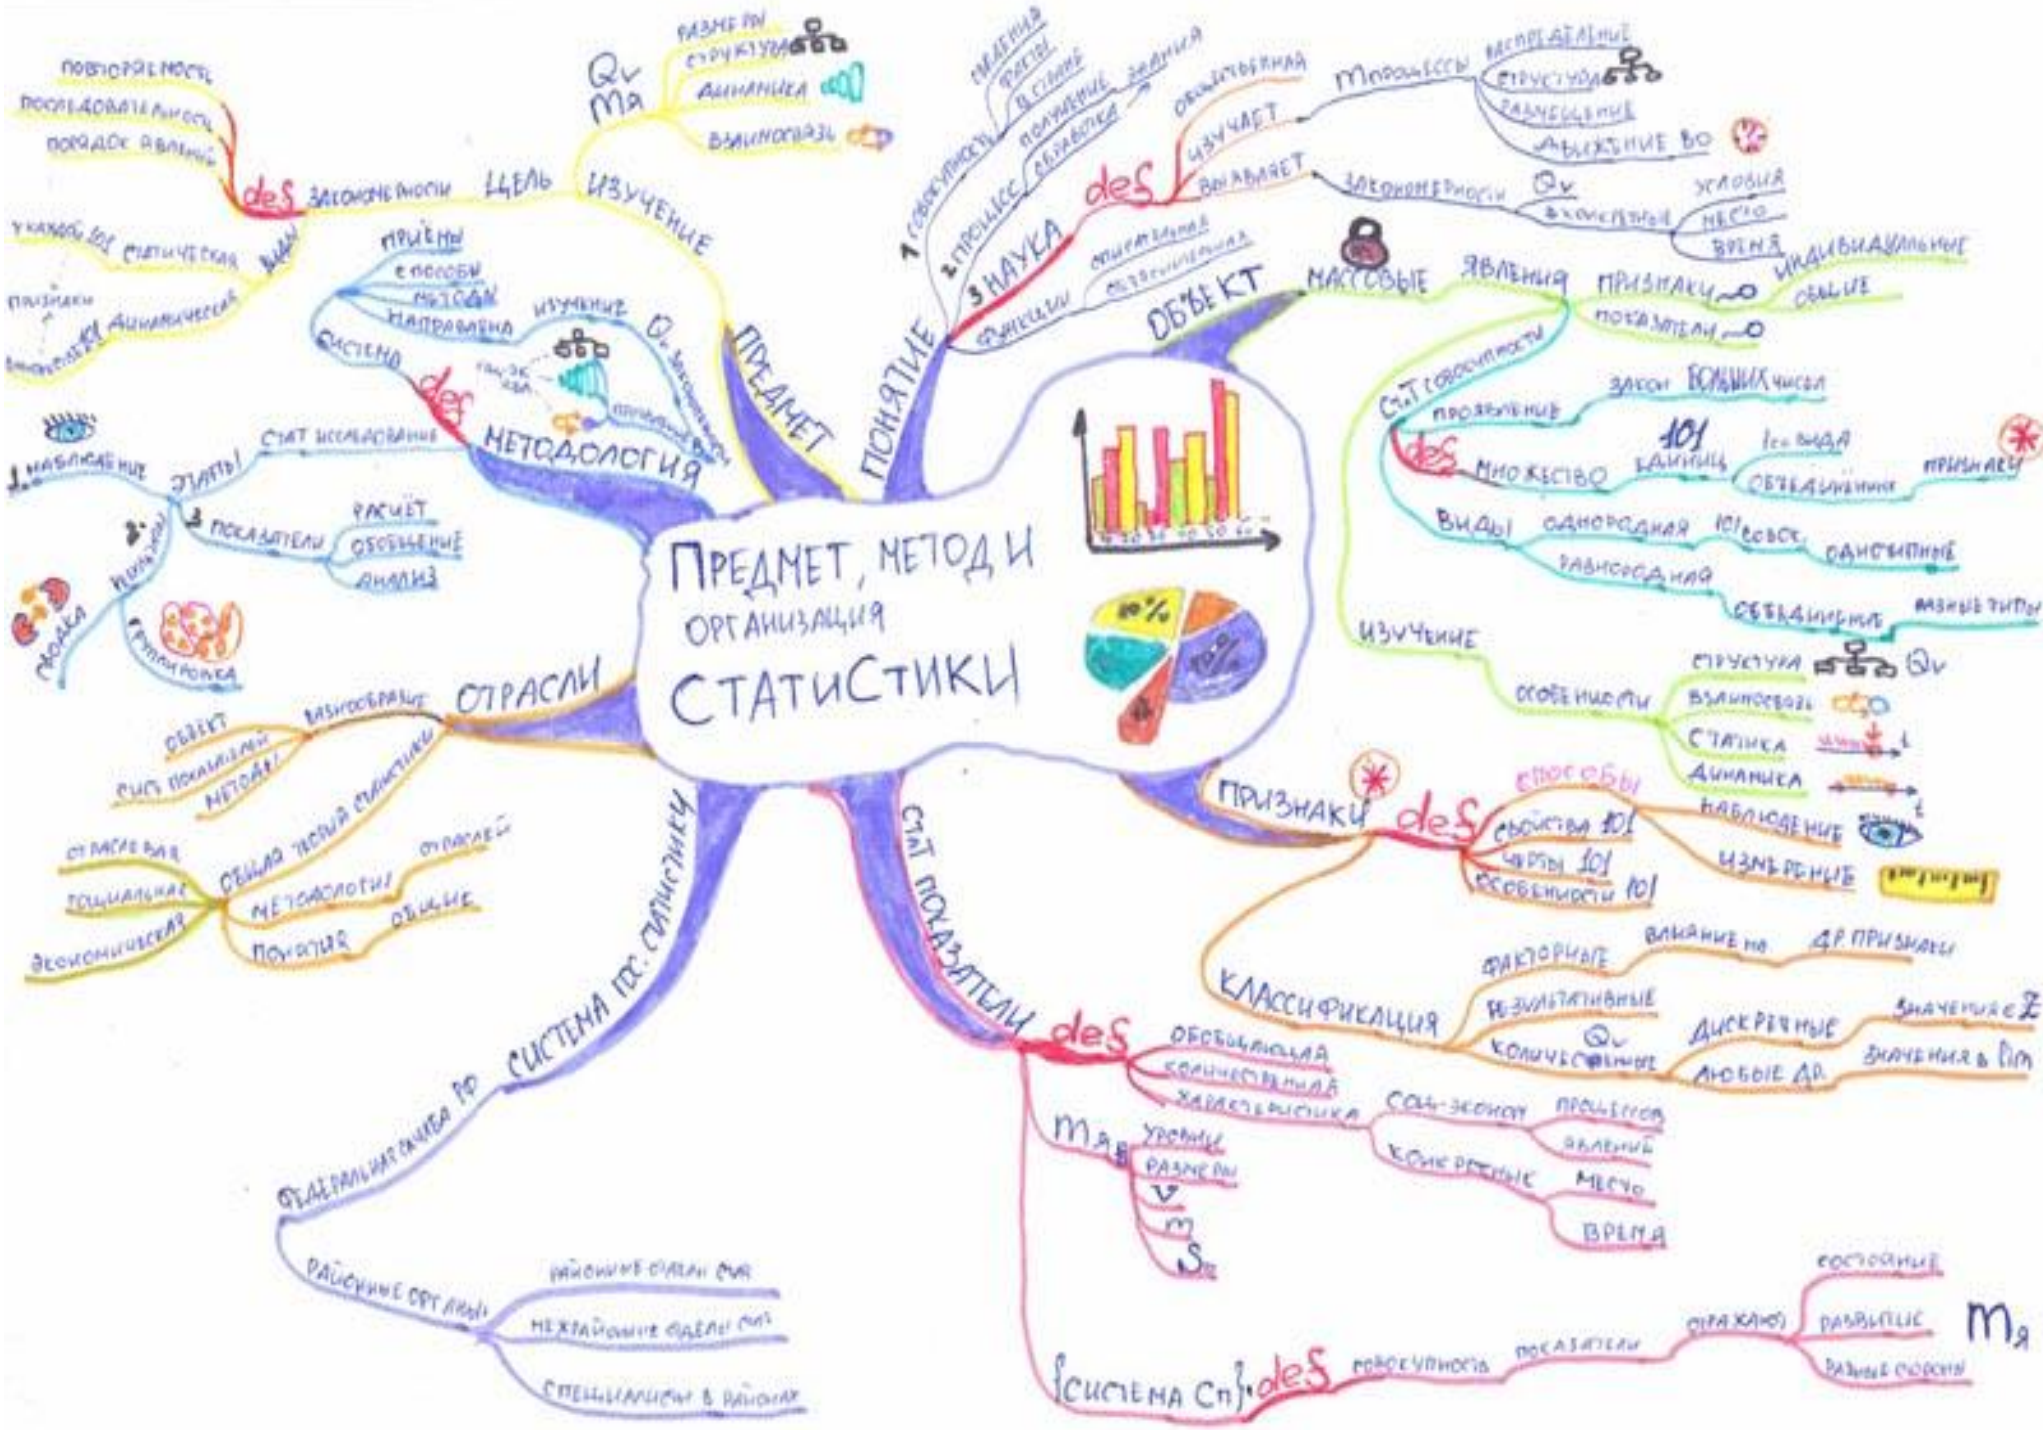 ПРЕДМЕТ, МЕТОД И
ОРГАНИЗАЦИЯ
СТАТИСТИКИ
80%
ПОНЯТИЕ
1 СОВОКУПНОСТЬ
СВЕДЕНИЯ
ФАКТЫ
В СТРАНЕ
2 ПРОЦЕСС
ПОЛУЧЕНИЕ
ОБРАБОТКА
3 НАУКА
def
ОБЩЕСТВЕННАЯ
ИЗУЧАЕТ
m ПРОЦЕССЫ
РАСПРЕДЕЛЕНИЕ
СТРУКТУРА
РАЗМЕЩЕНИЕ
ДВИЖЕНИЕ ВО
ВЫЯВЛЯЕТ
ЗАКОНОМЕРНОСТИ
Qv
УСЛОВИЯ
МЕСТО
ВРЕМЯ
ФУНКЦИИ
ОПИСАТЕЛЬНАЯ
ОБЪЯСНИТЕЛЬНАЯ
ОБЪЕКТ
МАССОВЫЕ
ЯВЛЕНИЯ
ПРИЗНАКИ
ИНДИВИДУАЛЬНЫЕ
ОБЩИЕ
ПОКАЗАТЕЛИ
СТАТ СОВОКУПНОСТИ
ПРОЯВЛЕНИЕ
ЗАКОН БОЛЬШИХ ЧИСЕЛ
def
МНОЖЕСТВО
101
ЕДИНИЦ
1го ВИДА
ПРИЗНАКИ
ВИДЫ
ОДНОРОДНАЯ
101 СОВОК.
ОДНОТИПНЫЕ
РАЗНОРОДНАЯ
ОБЪЕДИНЕНИЕ
РАЗНЫЕ ТИПЫ
ИЗУЧЕНИЕ
ОСОБЕННОСТИ
СТРУКТУРА
Qv
ВЗАИМОСВЯЗЬ
СТАТИКА
t
ДИНАМИКА
t
ПРИЗНАКИ
def
СПОСОБЫ
НАБЛЮДЕНИЕ
ИЗМЕРЕНИЕ
СВОЙСТВА 101
ЧЕРТЫ 101
ОСОБЕННОСТИ 101
КЛАССИФИКАЦИЯ
ФАКТОРНЫЕ
ВЛИЯНИЕ НА
ДР. ПРИЗНАКИ
РЕЗУЛЬТАТИВНЫЕ
Qv
КОЛИЧЕСТВЕННЫЕ
ДИСКРЕТНЫЕ
ЗНАЧЕНИЯ Є Z
ЛЮБЫЕ ДР.
СТАТ ПОКАЗАТЕЛИ
def
ОБОБЩАЮЩАЯ
КОЛИЧЕСТВЕННАЯ
ХАРАКТЕРИСТИКА
СОЦ-ЭКОНОМ
ПРОЦЕССОВ
ЯВЛЕНИЙ
КОНКРЕТНЫЕ
МЕСТО
ВРЕМЯ
mя
УРОВНИ
РАЗМЕРЫ
V
m
{СИСТЕМА Сп}
def
СОВОКУПНОСТЬ
ПОКАЗАТЕЛИ
ОТРАЖАЮТ
СОСТОЯНИЕ
РАЗВИТИЕ
РАЗНЫЕ СТОРОНЫ
mя
СИСТЕМА ГОС. СТАТИСТИКИ
ФЕДЕРАЛЬНАЯ СЛУЖБА РФ
РАЙОННЫЕ ОРГАНЫ
РАЙОННЫЕ ОТДЕЛЫ СТАТ
МЕЖРАЙОННЫЕ ОТДЕЛЫ СТАТ
СПЕЦИАЛИСТЫ В РАЙОНАХ
ОТРАСЛИ
РАЗНООБРАЗИЕ
ОБЪЕКТ
СИСТ ПОКАЗАТЕЛЕЙ
МЕТОДЫ
ОБЩАЯ ТЕОРИЯ СТАТИСТИКИ
ОТРАСЛЕВАЯ
СОЦИАЛЬНАЯ
ЭКОНОМИЧЕСКАЯ
МЕТОДОЛОГИЯ
ОТРАСЛЕЙ
ПОНЯТИЯ
ОБЩИЕ
МЕТОДОЛОГИЯ
def
СИСТЕМА
ПРИЁМЫ
СПОСОБЫ
МЕТОДЫ
НАПРАВЛЕНА
ИЗУЧЕНИЕ
Qv ЗАКОНОМЕРНОСТИ
СТАТ ИССЛЕДОВАНИЕ
ЭТАПЫ
1. НАБЛЮДЕНИЕ
2.
СВОДКА
ГРУППИРОВКА
3 ПОКАЗАТЕЛИ
РАСЧЁТ
ОБОБЩЕНИЕ
АНАЛИЗ
ПРЕДМЕТ
ИЗУЧЕНИЕ
Qv
mя
РАЗМЕРЫ
СТРУКТУРА
ДИНАМИКА
ВЗАИМОСВЯЗЬ
ЦЕЛЬ
ЗАКОНОМЕРНОСТИ
def
ПОВТОРЯЕМОСТЬ
ПОСЛЕДОВАТЕЛЬНОСТЬ
ПОРЯДОК ЯВЛЕНИЙ
ВИДЫ
СТАТИЧЕСКАЯ
ДИНАМИЧЕСКАЯ
ПРИЗНАКИ